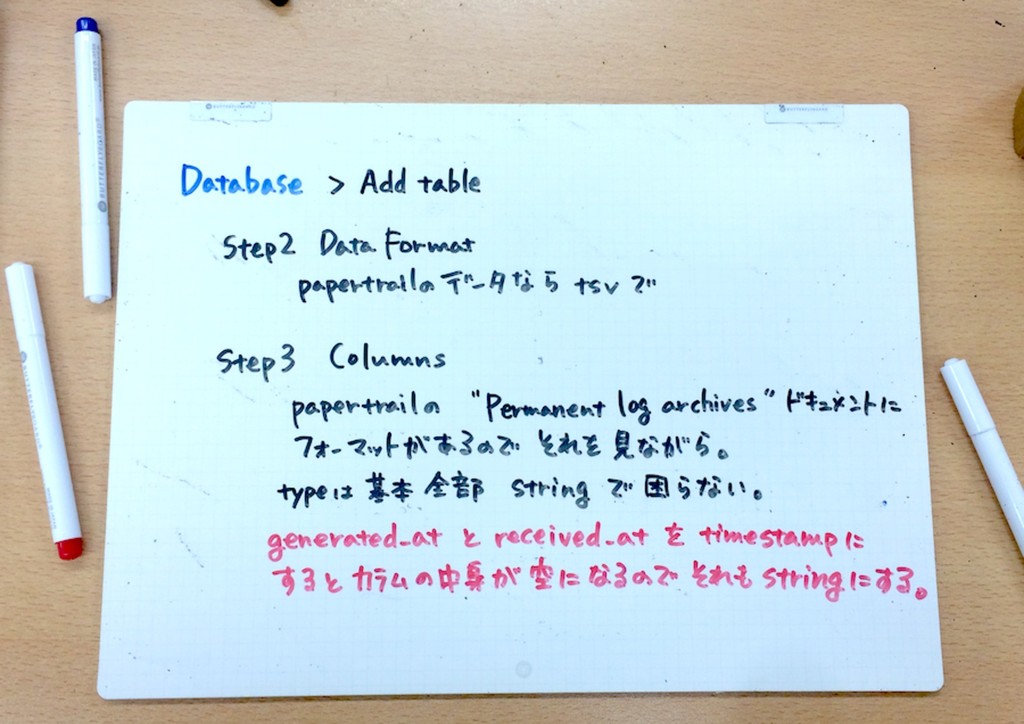 Database > Add table
Step2 Data Format
papertrailのデータなら tsv で
Step3 Columns
papertrailの "Permanent log archives" ドキュメントに
フォーマットがあるので それを見ながら。
typeは基本全部 string で困らない。
generated_at と received_at を timestampに
するとカラムの中身が空になるので それも stringにする。